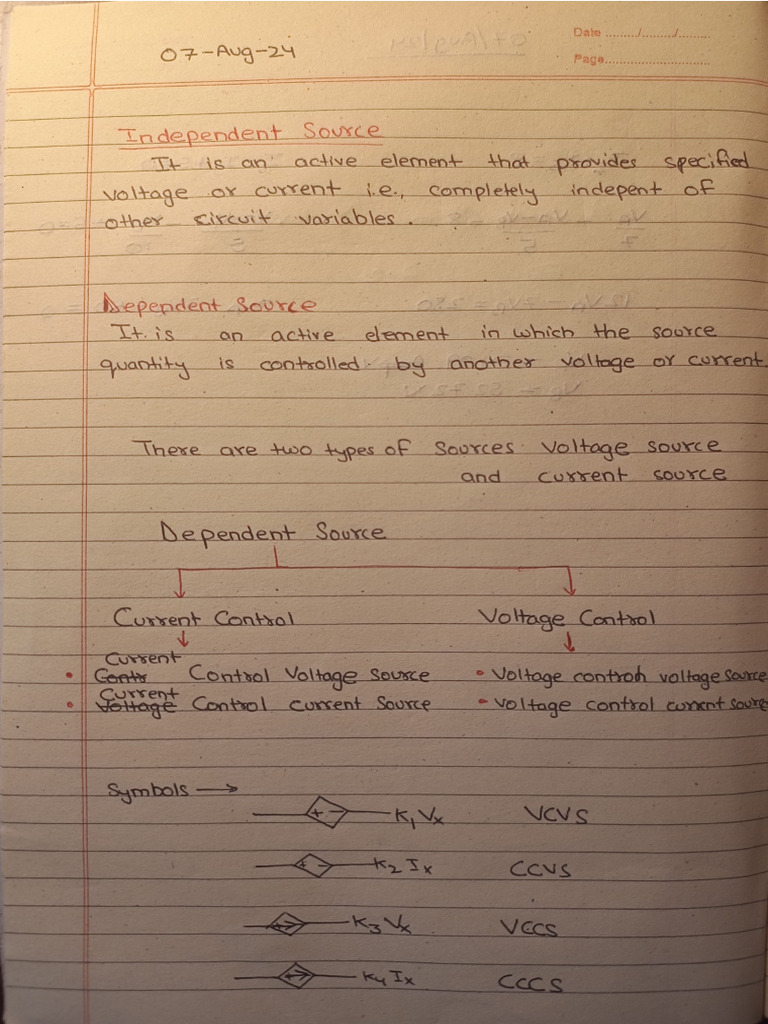 07-Aug-24
Date ......../......../........
Page............................
Independent Source
It is an active element that provides specified
voltage or current i.e., completely indepent of
other circuit variables.
Dependent Source
It is an active element in which the source
quantity is controlled by another voltage or current.
There are two types of sources voltage source
and current source
Dependent Source
Current Control Voltage Control
Current
• Contr Control Voltage source • Voltage control voltage source
Current
• Voltage Control current Source • voltage control current source
Symbols →
+ - K₁Vx VCVS
+ - K₂Ix CCVS
K₃Vx VCCS
K₄Ix CCCS